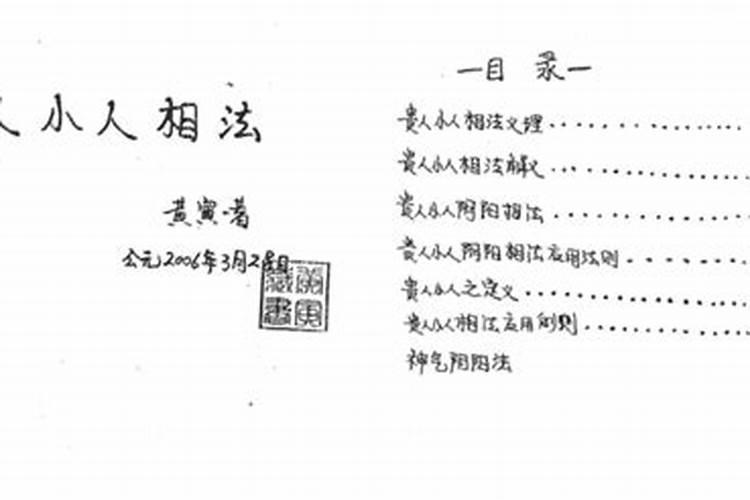 人小人相法
黄寅·著
公元2006年3月2
黄寅藏书
一目 录一
贵人小人相法义理
贵人小人相法解义
贵人小人阴阳相法
贵人小人阴阳相法应用法则
贵人小人之定义
贵人小人相法应用例则
神气阴阳法